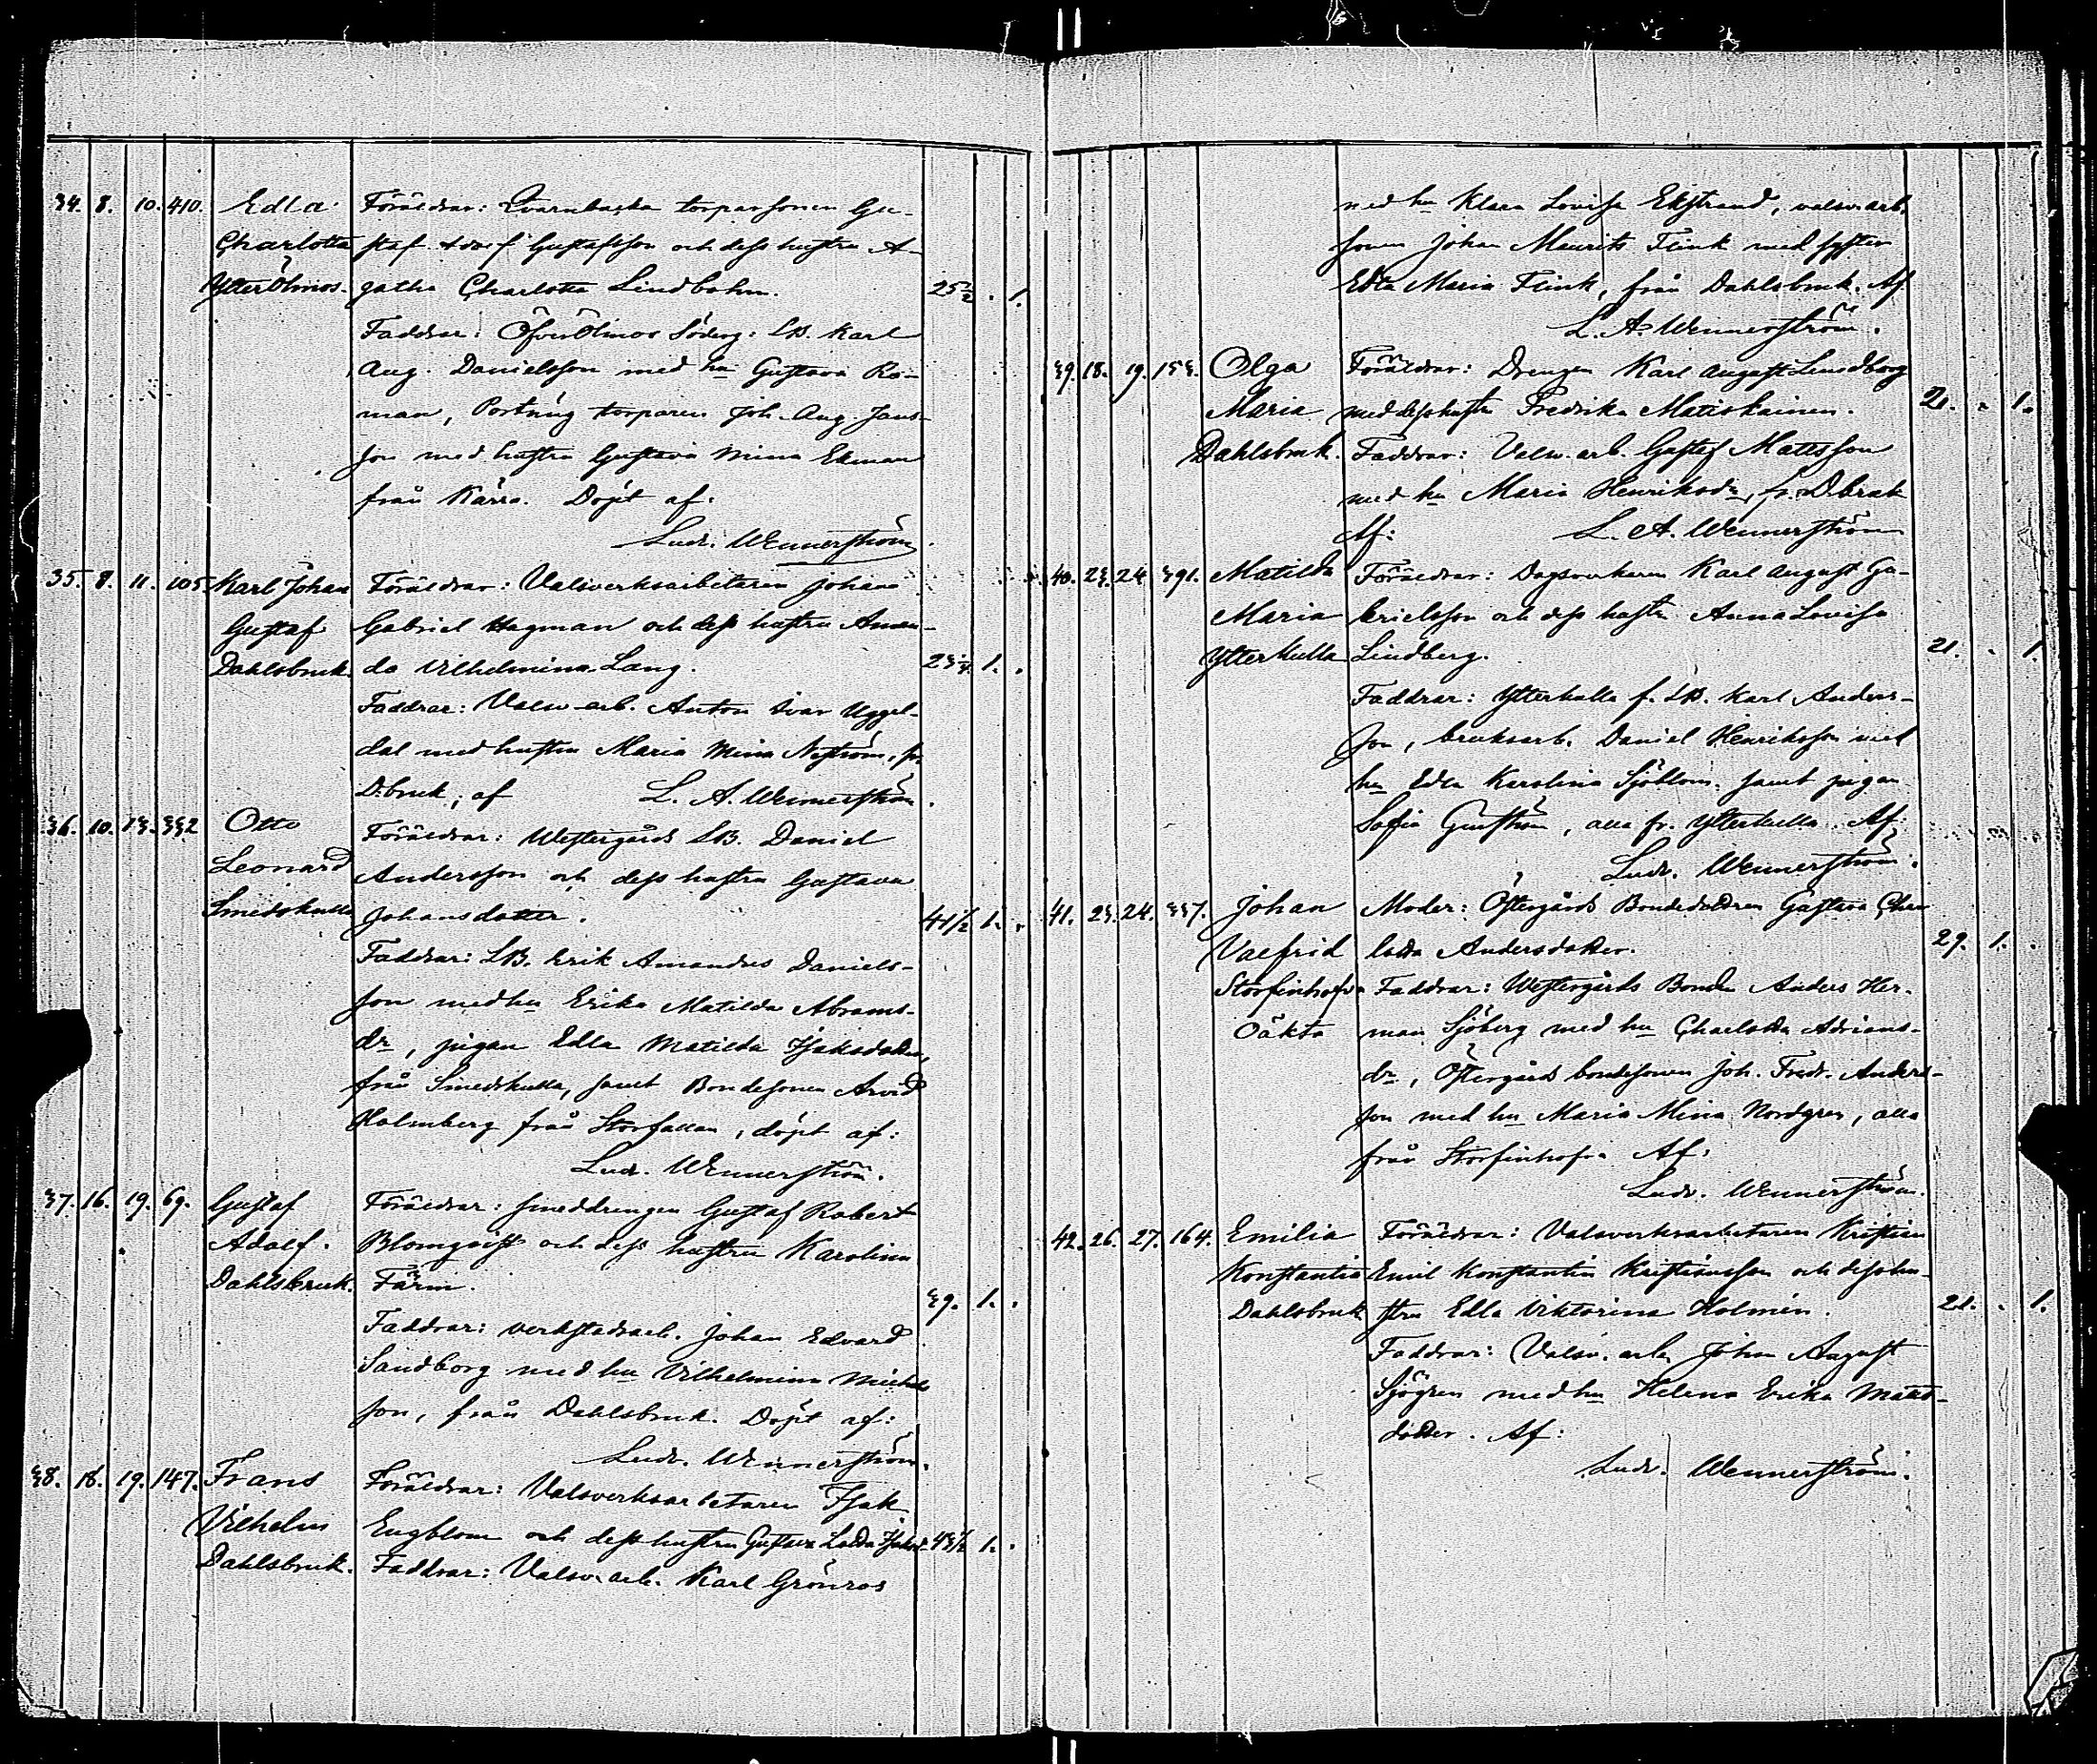 34. 8. 10. 410. Edla Föräldrar: Qvarnbacka torparsonen Gu-
Charlotta staf Adolf Gustafsson och dess hustru A-
YtterÖlmos. gatha Charlotta Lindbohm. 25½ . 1.
Faddrar: ÖfverÖlmos Söderg: LB. Karl
Aug. Danielsson med hu Gustava Ro-
man, torparen Joh. Aug. Jans-
son med hustru Gustava Mina Ekman
från Kärra. Döpt af:
Ludv. Wennerström.
35. 8. 11. 105. Karl Johan Föräldrar: Valsverksarbetaren Johan
Gustaf Gabriel Hagman och dess hustru Aman-
Dahlsbruk. da Vilhelmina Lang. 23¼. 1. .
Faddrar: Valsv. arb. Anton Ivar Uggel-
dal med hustru Maria Mina Nyström, fr.
D.bruk, af L. A. Wennerström.
36. 10. 13. 332 Otto Föräldrar: Westergårds LB. Daniel
Leonard Andersson och dess hustru Gustava
Smedskulla Johansdotter. 41½ 1. .
Faddrar: LB. Erik Amandus Daniels-
son med hu Erika Matilda Abrams-
dr, pigan Edla Matilda Isaksdotter,
från Smedskulla, samt Bondesonen Arvid
Holmberg från Storfallan, döpt af:
Ludv. Wennerström.
37. 16. 19. 69. Gustaf Föräldrar: smeddrengen Gustaf Robert
Adolf. Blomqvist och dess hustru Karolina
Dahlsbruk. Färm. 39. 1. .
Faddrar: verkstadsarb. Johan Edvard
Sandborg med hu Vilhelmina Michels
son, från Dahlsbruk. Döpt af:
Ludv. Wennerström.
38. 18. 19. 147. Frans Föräldrar: Valsverksarbetaren Isak
Vilhelm Engblom och dess hustru Gustava Lovisa Isaksd. 43½ 1. .
Dahlsbruk. Faddrar: Valsv. arb. Karl Grönros
med hu Klara Lovisa Ekstrand, valsv. arb.
sonen Johan Maurits Flink med syster
Edla Maria Flink, från Dahlsbruk. Af
L. A. Wennerström.
39. 18. 19. 153. Olga Föräldrar: Drengen Karl August Lindborg
Maria med dess hustru Fredrika Matiskainen. 21. . 1.
Dahlsbruk. Faddrar: Valsv. arb. Gustaf Mattsson
med hu Maria Henriksdr, fr. D.bruk
Af: L. A. Wennerström
40. 23. 24. 391. Matilda Föräldrar: Dagsverkaren Karl August Ga-
Maria brielsson och dess hustru Anna Lovisa
Ytterkulla Lindberg. 21. . 1.
Faddrar: Ytterkulla f. LB. Karl Anders-
son, bruksarb. Daniel Henriksson med
hu Edla Karolina Sjöblom, samt pigan
Sofia, alla fr. Ytterkulla. Af:
Ludv. Wennerström.
41. 23. 24. 337. Johan Moder: Östergårds Bondedottren Gustava Char
Valfrid lotta Andersdotter. 29. 1. .
Storfinhofva Faddrar: Westergårds Bonden Anders Her-
Oäkta man Sjöberg med hu Charlotta Adrians-
dr, Östergårds bondesonen Joh. Fredr. Anders-
son med hu Maria Mina Nordgren, alla
från Storfinhofva Af:
Ludv. Wennerström.
42. 26. 27. 164. Emilia Föräldrar: Valsverksarbetaren Kristian
Konstantia Emil Konstantin Kristiansson och dess hu-
Dahlsbruk stru Edla Viktorina Holmén. 21. . 1.
Faddrar: Valsv. arb. Johan August
Sjögren med hu Helena Erika Matts-
dotter. Af:
Ludv. Wennerström.